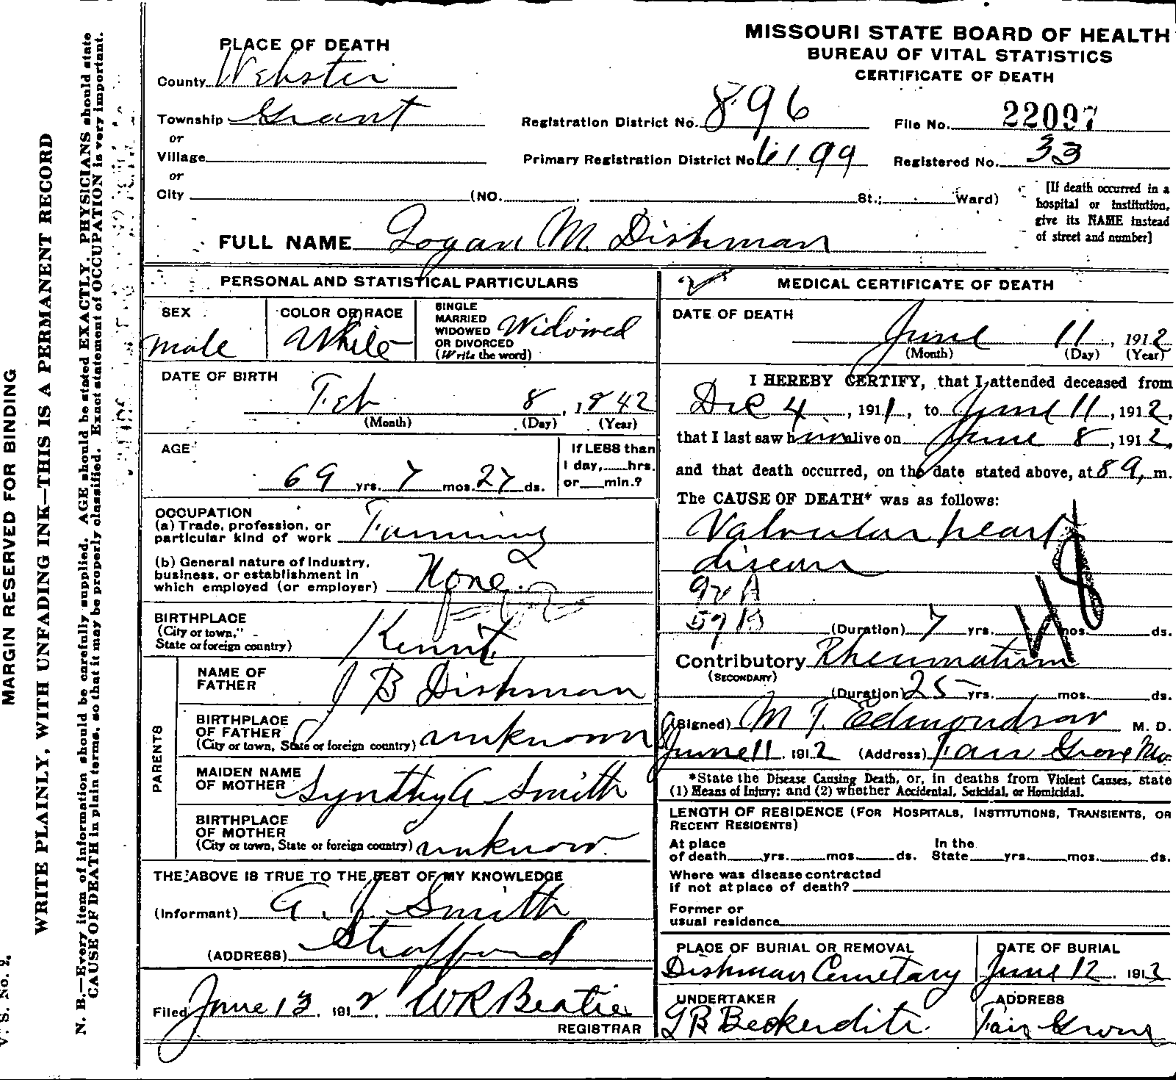 MISSOURI STATE BOARD OF HEALTH
BUREAU OF VITAL STATISTICS
CERTIFICATE OF DEATH
PLACE OF DEATH
County Webster
Township Grant
or
Village
or
City (NO. St.; Ward)
Registration District No. 896
File No. 22097
Primary Registration District No. 6199
Registered No. 33
[If death occurred in a
hospital or institution,
give its NAME instead
of street and number]
FULL NAME Logan M Dishman
PERSONAL AND STATISTICAL PARTICULARS
SEX
male
COLOR OR RACE
White
SINGLE
MARRIED
WIDOWED
OR DIVORCED
(Write the word)
Widowed
DATE OF BIRTH
Feb 8, 1842
(Month) (Day) (Year)
AGE
69 yrs. 7 mos. 27 ds.
If LESS than
1 day, hrs.
or min.?
OCCUPATION
(a) Trade, profession, or
particular kind of work Farming
(b) General nature of industry,
business, or establishment in
which employed (or employer) None
BIRTHPLACE
(City or town,
State or foreign country)
PARENTS
NAME OF
FATHER J B Dishman
BIRTHPLACE
OF FATHER
(City or town, State or foreign country) unknown
MAIDEN NAME
OF MOTHER Synthy A Smith
BIRTHPLACE
OF MOTHER
(City or town, State or foreign country) unknow.
THE ABOVE IS TRUE TO THE BEST OF MY KNOWLEDGE
(Informant) A. J. Smith
(ADDRESS) Strafford
Filed June 13 1912 WR Beatie
REGISTRAR
MEDICAL CERTIFICATE OF DEATH
DATE OF DEATH
June 11, 1912
(Month) (Day) (Year)
I HEREBY CERTIFY, that I attended deceased from
Dec 4, 1911, to June 11, 1912,
that I last saw him alive on June 8, 1912,
and that death occurred, on the date stated above, at 8 a, m.
The CAUSE OF DEATH* was as follows:
Valvular heart
disease
(Duration) 7 yrs. mos. ds.
Contributory Rheumatism
(SECONDARY)
(Duration) 25 yrs. mos. ds.
(Signed) M T. Edmondson M. D.
June 11 1912 (Address) Fair Grove Mo
*State the Disease Causing Death, or, in deaths from Violent Causes, state
(1) Means of Injury; and (2) whether Accidental, Suicidal, or Homicidal.
LENGTH OF RESIDENCE (FOR HOSPITALS, INSTITUTIONS, TRANSIENTS, OR
RECENT RESIDENTS)
At place
of death yrs. mos. ds.
In the
State yrs. mos. ds.
Where was disease contracted
if not at place of death?
Former or
usual residence
PLACE OF BURIAL OR REMOVAL
Dishman Cemetary
DATE OF BURIAL
June 12 1912
UNDERTAKER
ADDRESS
MARGIN RESERVED FOR BINDING
WRITE PLAINLY, WITH UNFADING INK—THIS IS A PERMANENT RECORD
N. B.—Every item of information should be carefully supplied. AGE should be stated EXACTLY. PHYSICIANS should state
CAUSE OF DEATH in plain terms, so that it may be properly classified. Exact statement of OCCUPATION is very important.
V. S. No. 2.